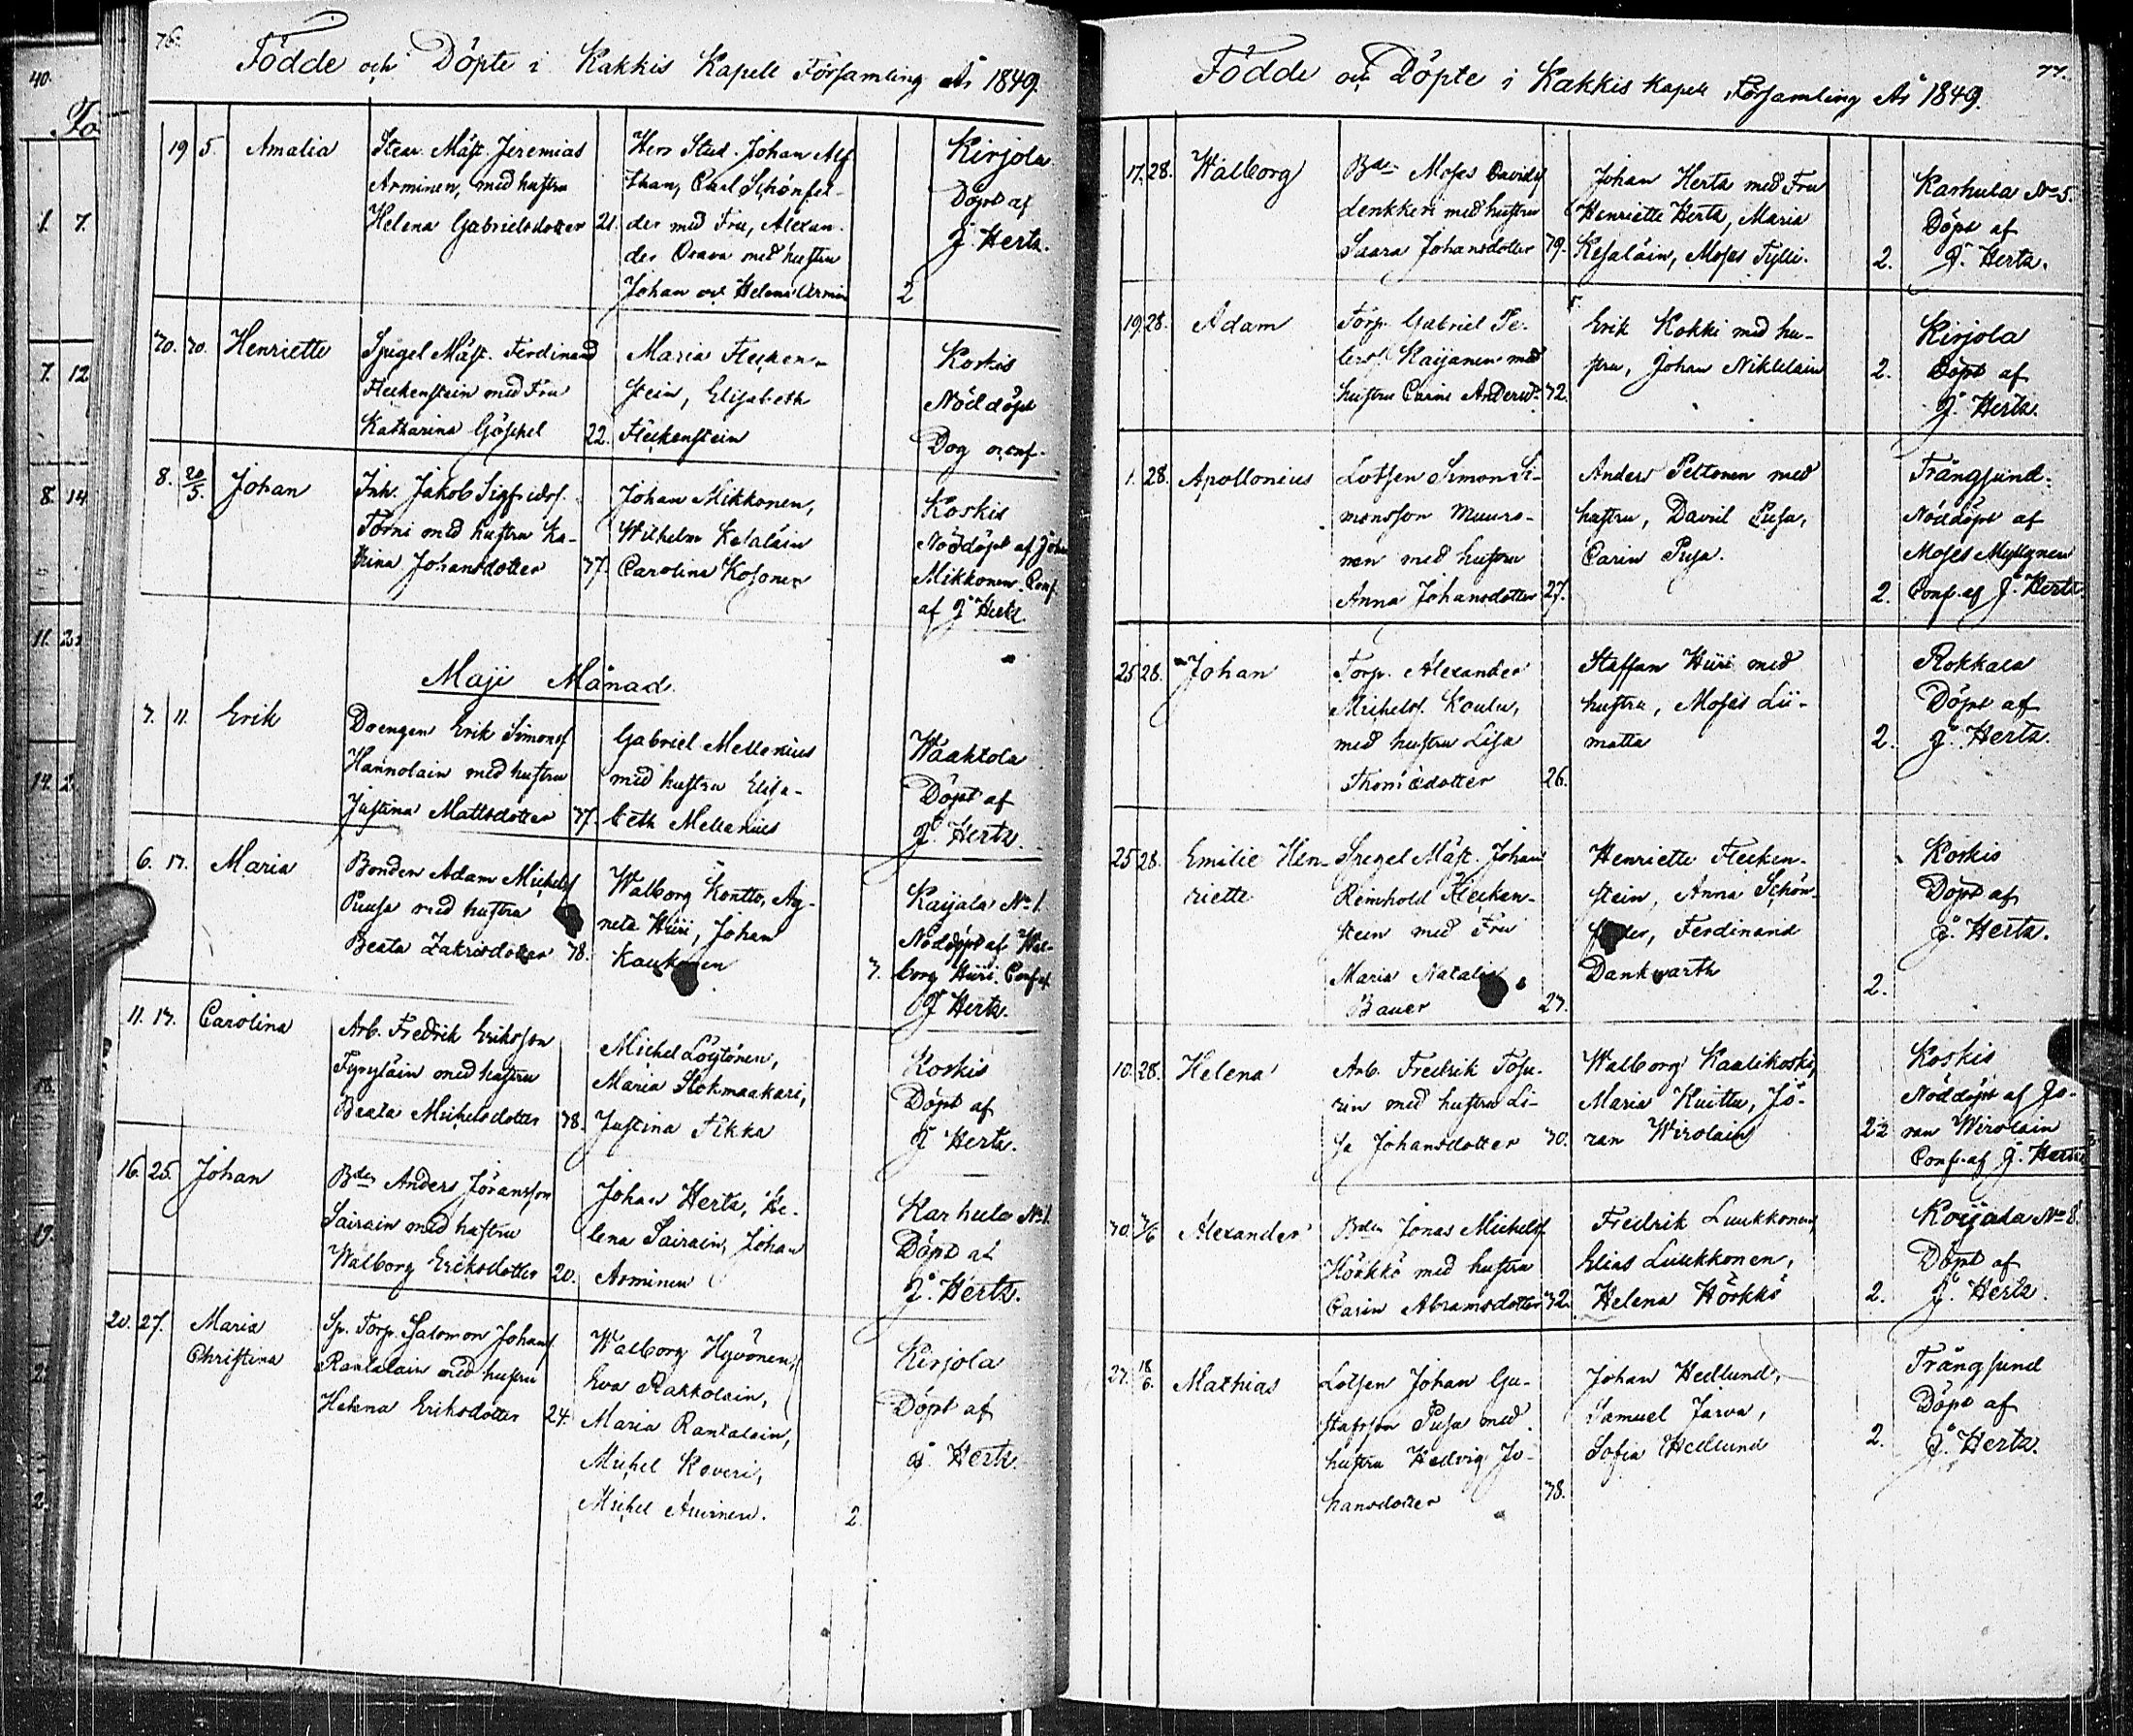 40.
Fo
1. 7.
7. 12
8. 14
11.
14. 2
19.
76.
Födde och Döpte i Kakkis Kapell Församling År 1849.
19 5. Amalia
Mäst. Jeremias
Arminen, med hustru
Helena Gabrielsdotter 21.
Herr Stud. Johan Alf
than, Carl Schönfel-
der med Fru, Alexan-
der Orava med hustru
Johan och Helena Armin
2
Kirjola
Döpt af
J. Hertz.
30. 30. Henriette
Spegel Mäst. Ferdinand
Fleckenstein med Fru
Katharina Göschel 22.
Maria Flecken-
stein, Elisabeth
Fleckenstein
Koskis
Nöddöpt
Dog oconf.
8. 20/5. Johan
Inh. Jakob Sigfridsf.
Torni med hustru Ka-
trina Johansdotter 37.
Johan Mikkonen,
Wilhelm Kesäläin
Carolina Kosonen
Koskis
Nöddöpt af Joh
Mikkonen. Conf.
af J. Hertz
Maji Månad.
7. 11. Erik
Drengen Erik Simonsf
Hannolain med hustru
Justina Mattsdotter 37.
Gabriel Mellenius
med hustru Elisa-
beth Mellenius
Waaktola
Döpt af
J. Hertz.
6. 17. Maria
Bonden Adam Michelsf
Puusa med hustru
Beata Zakrisdotter 38.
Walborg Kontto, Ag-
neta Hüri, Johan
Kaukonen
3.
Kaijala No 1.
Nöddöpt af Wal-
borg Hüri. Conf. af
J. Hertz.
11. 17. Carolina
Arb. Fredrik Eriksson
Tyryläin med hustru
Beata Michelsdotter 38.
Michel Löytönen,
Maria Stokmaakari,
Justina Tikka
Koskis
Döpt af
J. Hertz.
16. 25. Johan
Bden Anders Jöransson
Sairain med hustru
Walborg Eriksdotter 20.
Johan Hertz, He-
lena Sairain, Johan
Arminen
Karhula No 1.
Döpt af
J. Hertz.
20. 27. Maria
Christina
Sp. Torp. Salomon Johansf
Rantalain med hustru
Helena Eriksdotter 24.
Walborg Hyvönen,
Eva Rakkolain,
Maria Rantalain,
Michel Koveri,
Michel Auvinen.
2.
Kirjola
Döpt af
J. Hertz.
77.
Födde och Döpte i Kakkis Kapell Församling År 1849.
17. 28. Walborg
Bden Moses Davidsf
Lenkkeri med hustru
Saara Johansdotter 39.
Johan Hertz med Fru
Henriette Hertz, Maria
Kesäläin, Moses Tylli.
2.
Karhula No 5.
Döpt af
J. Hertz.
19 28. Adam
Torp. Gabriel Pe-
tersf. Kaijanen med
hustru Carin Andersd. 32.
Erik Kokki med hu-
stru, Johan Nikkilain
2.
Kirjola
Döpt af
J. Hertz.
1. 28. Apollonius
Lotsen Simon Si-
monsson Muuro-
nen med hustru
Anna Johansdotter 27.
Anders Peltonen med
hustru, David Pusa,
Carin Pusa.
2.
Trångsund.
Nöddöpt af
Moses Myllynen
Conf. af J. Hertz
25 28. Johan
Torp. Alexander
Michelsf. Koulu,
med hustru Lisa
Thomædotter 26.
Staffan Hüri med
hustru, Moses Lii-
matta
2.
Rokkala
Döpt af
J. Hertz.
25 28. Emilie Hen-
riette
Spegel Mäst. Johan
Reinhold Flecken-
stein med Fru
Maria Natalia
Bauer 27.
Henriette Flecken-
stein, Anna Schön-
felder, Ferdinand
Dankwarth
2.
Koskis
Döpt af
J. Hertz.
10. 28. Helena
Arb. Fredrik Tosu-
rin med hustru Li-
sa Johansdotter 30.
Walborg Kaalikoski,
Maria Kuittu, Jö-
ran Wirolain
22
Koskis
Nöddöpt af Jö-
ran Wirolain
Conf. af J. Hertz
30. 3/6 Alexander
Bden Jonas Michelsf.
Hörkkö med hustru
Carin Abramsdotter 32.
Fredrik Luukkonen,
Elias Luukkonen,
Helena Hörkkö
2.
Koijala No 8.
Döpt af
J. Hertz.
27. 18/6. Mathias
Lotsen Johan Gu-
stafsson Pusa med
hustru Hedvig Jo-
hansdotter 38.
Johan Hedlund,
Samuel Jarva,
Sofia Hedlund
2.
Trångsund
Döpt af
J. Hertz.